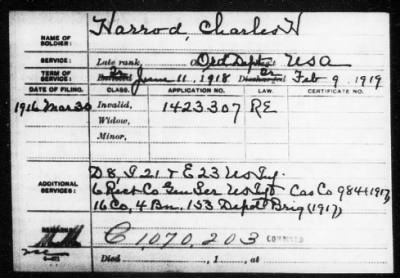 NAME OF SOLDIER: Harrod, Charles H
SERVICE: Late rank Ord Dept, USA
TERM OF SERVICE: Enlisted June 11, 1918 Discharged Feb 9, 1919
DATE OF FILING. CLASS. APPLICATION NO. LAW. CERTIFICATE NO.
1916 Mar 30 Invalid, 1423.307 RE
Widow,
Minor,
ADDITIONAL SERVICES: D 8, I 21 & E 23 US Inf.
6 Rect Co Gen Ser US Inf Cas Co 984 (1917)
16 Co, 4 Bn. 153 Depot Brig (1917)
C 1070,203
Died , 1 , at